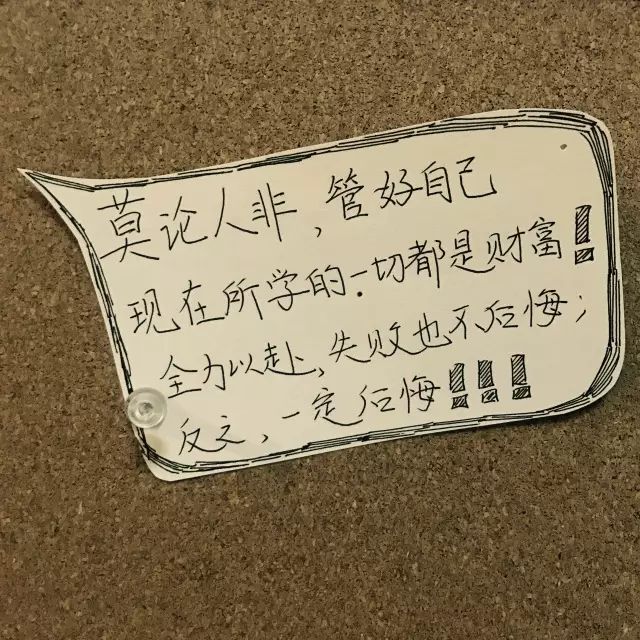 莫论人非，管好自己
现在所学的一切都是财富！
全力以赴，失败也不后悔；
反之，一定后悔！！！